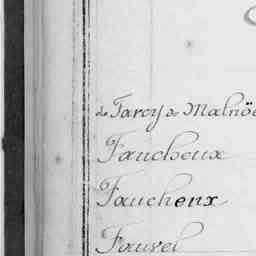 de Farcy de Malnoë
Faucheux
Faucheux
Fauvel